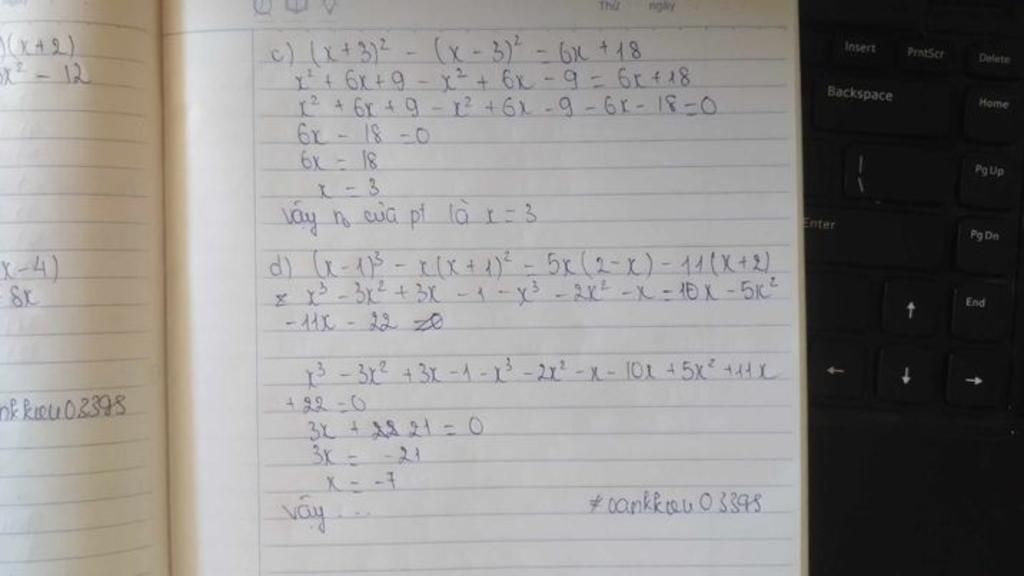 Thứ ngày
)(x+2)
x² - 12
x-4)
= 8x
c) (x+3)² - (x-3)² = 6x + 18
x² + 6x + 9 - x² + 6x - 9 = 6x + 18
x² + 6x + 9 - x² + 6x - 9 - 6x - 18 = 0
6x - 18 = 0
6x = 18
x = 3
Vậy n₀ của pt là x = 3
d) (x-1)³ - x(x+1)² = 5x(2-x) - 11(x+2)
x³ - 3x² + 3x - 1 - x³ - 2x² - x = 10x - 5x²
- 11x - 22
x³ - 3x² + 3x - 1 - x³ - 2x² - x - 10x + 5x² + 11x
+ 22 = 0
3x + 21 = 0
3x = -21
x = -7
Vậy ...
Insert PrntScr Delete
Backspace Home
| \ PgUp
Enter PgDn
↑ End
← ↓ →